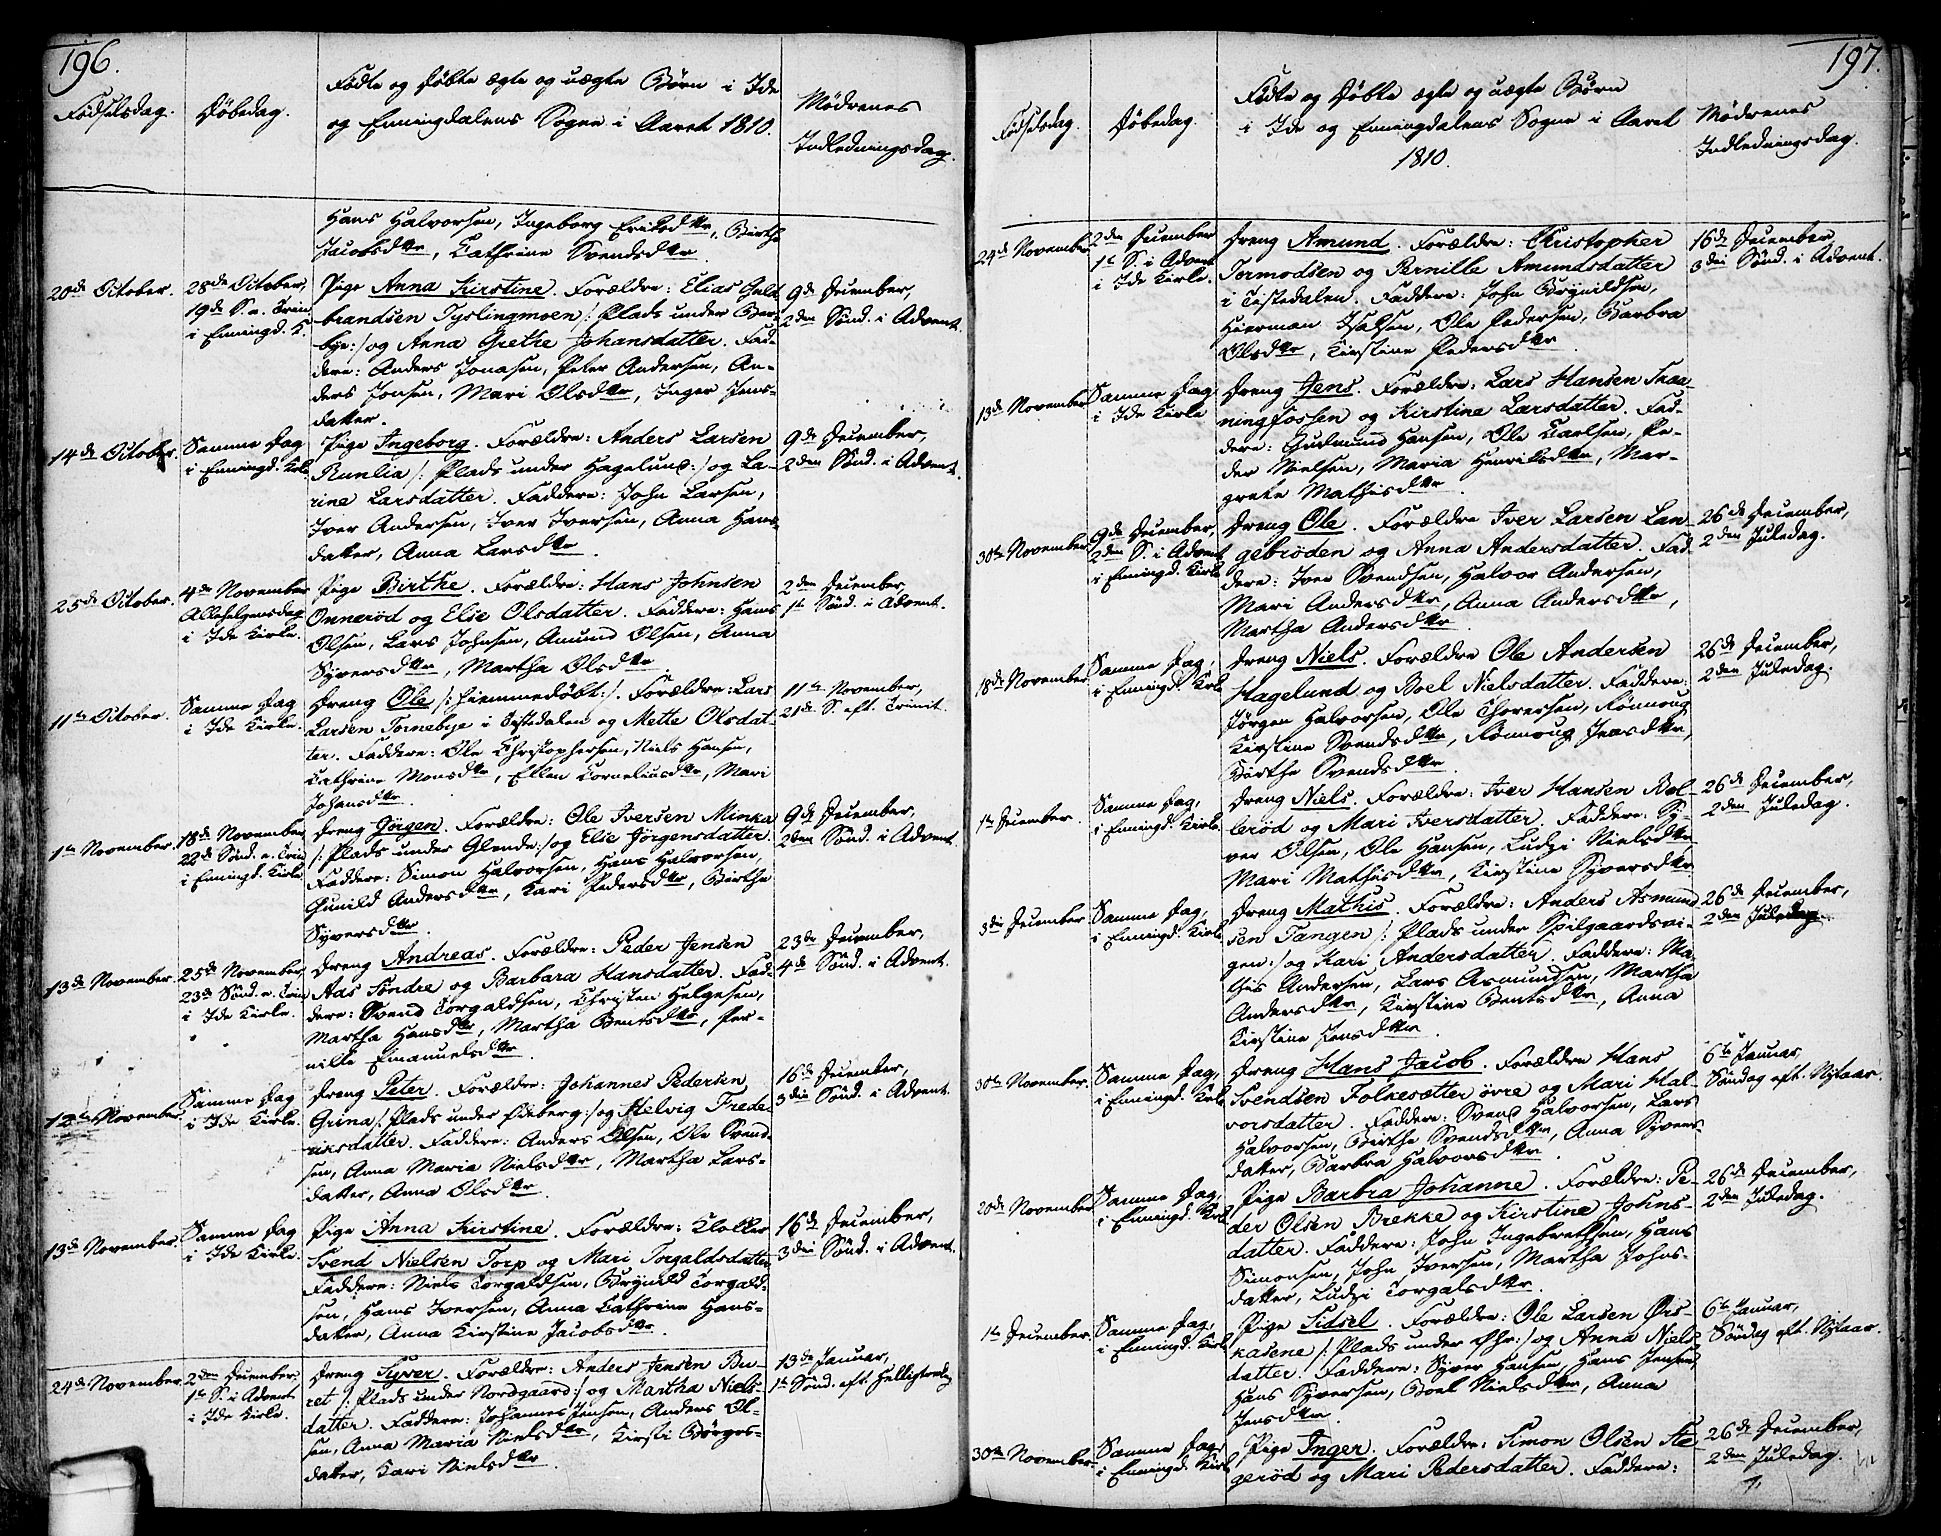 196.
Fødselsdag.
Døbedag.
Fødte og Døbte ægte og uægte Børn i Ide
og Enningdalens Sogne i Aaret 1810.
Mødrenes
Indledningsdag.
Hans Halvorsen, Ingeborg Eriksdttr, Birthe
Jacobsdttr, Cathrine Svendsdttr.
20de October.
28de October,
19de S. e. Trin.
i Enningd. K.
Pige Anna Kirstine. Forældre: Elias Guld-
brandsen Tyslingmoen /: Plads under Ber-
bye :/ og Anna Grethe Johansdatter. Fad-
dere: Anders Jonasen, Peter Andersen, An-
ders Jonsen, Mari Olsdttr, Inger Jens-
datter.
9de December,
2den Sönd. i Advent.
14de October.
Samme Dag
i Enningd. Kirke.
Pige Ingeborg. Forældre: Anders Larsen
Runlia /: Plads under Hagelund :/ og La-
rine Larsdatter. Faddere: John Larsen,
Iver Andersen, Iver Iversen, Anna Hans-
datter, Anna Larsdttr.
9de December,
2den Sönd. i Advent.
25de October.
4de November
Allehelgensdag
i Ide Kirke.
Pige Birthe. Forældre: Hans Johnsen
Onneröd og Elie Olsdatter. Faddere: Hans
Olsen, Lars Johnsen, Amund Olsen, Anna
Syversdttr, Martha Olsdttr.
2den December,
1te Sönd. i Advent.
11te October.
Samme Dag
i Ide Kirke.
Dreng Ole /: hiemmedöbt :/. Forældre: Lars
Larsen Tornebye i Tistedalen og Mette Olsdat-
ter. Faddere: Ole Christophersen, Niels Hansen,
Cathrine Monsdttr, Ellen Corneliusdttr, Mari
Johansdttr.
11te November,
21de S. eft. Trinit.
1te November.
18de November,
22de Sönd. e. Trin
i Enningd. Kirke
Dreng Jörgen. Forældre: Ole Iversen Minka
/: Plads under Glende :/ og Elie Jörgensdatter.
Faddere: Simon Halvorsen, Hans Halvorsen,
Gunild Andersdttr, Kari Pedersdttr, Birthe
Syversdttr.
9de December,
2den Sönd. i Advent.
13de November.
25de November,
23de Sönd. e. Trin
i Ide Kirke.
Dreng Andreas. Forældre: Peder Jensen
Aas söndre og Barbara Hansdatter. Fad-
dere: Svend Torgaldsen, Christen Helgesen,
Martha Hansdttr, Martha Bentsdttr, Per-
nille Emanuelsdttr.
23de December,
4de Sönd. i Advent.
12te November.
Samme Dag
i Ide Kirke.
Dreng Peter. Forældre: Johannes Pedersen
Grina /: Plads under Ekeberg :/ og Helvig Frede-
riksdatter. Faddere: Anders Olsen, Ole Svend-
sen, Anna Maria Nielsdttr, Martha Lars-
datter, Anna Olsdttr.
16de December,
3die Sönd. i Advent.
13de November.
Samme Dag
i Ide Kirke.
Pige Anna Kirstine. Forældre: Klokker
Svend Nielsen Torp og Mari Torgaldsdatter.
Faddere: Niels Torgaldsen, Brynild Torgald-
sen, Hans Iversen, Anna Cathrine Hans-
datter, Anna Kirstine Jacobsdttr.
16de December,
3die Sönd. i Advent.
24de November.
2den December,
1te S. i Advent
i Ide Kirke.
Dreng Syver. Forældre: Anders Jensen Bu-
ret /: Plads under Nordgaard :/ og Martha Niels-
datter. Faddere: Johannes Jensen, Anders Ol-
sen, Anna Maria Nielsdttr, Kirsti Börges-
datter, Kari Nielsdttr.
13de Januar,
1te Sönd. eft. Helligtrekg
197.
Födselsdag.
Döbedag.
Födte og Döbte ægte og uægte Börn
i Ide og Enningdalens Sogne i Aaret
1810.
Mödrenes
Indledningsdag.
24de November
2den December
1te S. i Advent
i Ide Kirke.
Dreng Amund. Forældre: Christopher
Tormodsen og Pernille Amundsdatter
i Tistedalen. Faddere: John Brynildsen,
Hierman Isaksen, Ole Pedersen, Barbra
Olsdttr, Kirstine Pedersdttr.
16de December,
3die Sönd. i Advent.
13de November
Samme Dag
i Ide Kirke
Dreng Jens. Forældre: Lars Hansen Skaa-
ningfossen og Kirstine Larsdatter. Fad-
dere: Gudmund Hansen, Ole Carlsen, Pe-
der Nielsen, Maria Henriksdttr, Mar-
grete Mathisdttr.
30te November
9de December,
2den S. i Advent
i Enningd. Kirke
Dreng Ole. Forældre Iver Larsen Lan-
gebröden og Anna Andersdatter. Fad-
dere: Iver Svendsen, Halvor Andersen,
Mari Andersdttr, Anna Andersdttr,
Martha Andersdttr.
26de December,
2den Juledag.
18de November.
Samme Dag,
i Enningd. Kirke
Dreng Niels. Forældre Ole Andersen
Hagelund og Boel Nielsdatter. Faddere:
Jörgen Halvorsen, Ole Thoresen, Rönnoug
Kirstine Svendsdttr, Rönnoug Jensdttr,
Birthe Svendsdttr.
26de December,
2den Juledag.
1te December.
Samme Dag,
i Enningd. Kirke
Dreng Niels. Forældre: Iver Hansen Bol-
leröd og Mari Iversdatter. Faddere: Sy-
ver Olsen, Ole Hansen, Ludzi Nielsdttr,
Mari Mathisdttr, Kirstine Syversdttr.
26de December,
2den Juledag.
3die December
Samme Dag,
i Enningd. Kirke
Dreng Mathis. Forældre: Anders Asmund
sen Tangen /: Plads under Spilgaardsvi-
gen :/ og Kari Andersdatter. Faddere: Ma-
this Andersen, Lars Asmundsen, Martha
Andersdttr, Kirstine Bentsdttr, Anna
Kirstine Jensdttr.
26de December,
2den Juledag
30te November.
Samme Dag,
i Enningd. Kirke
Dreng Hans Jacob. Forældre Hans
Svendsen Folkesætter övre og Mari Hal-
vorsdatter. Faddere: Svend Halvorsen, Lars
Halvorsen, Birthe Svendsdttr, Anna Syvers-
datter, Barbra Halvorsdttr.
6te Januar,
Söndag eft. Nytaar.
20de November
Samme Dag,
i Enningd. Kirke
Pige Barbra Johanne. Forældre: Pe-
der Olsen Brekke og Kirstine Johns-
datter. Faddere: John Ingebrethsen, Hans
Simonsen, John Iversen, Martha Johns-
datter, Ludzi Torgalsdttr.
26de December,
2den Juledag.
1te December.
Samme Dag,
i Enningd. Kirke
Pige Sidsel. Forældre: Ole Larsen Öris-
kasene /: Plads under Öhr :/ og Anna Niels
datter. Faddere: Syver Hansen, Hans Jensen,
Hans Syversen, Boel Nielsdttr, Anna
Jensdttr.
6te Januar,
Söndag eft. Nytaar.
30te November.
Samme Dag
i Enningd. Kirke
Pige Inger. Forældre: Simon Olsen Ste-
geröd og Mari Pedersdatter. Faddere:
26de December,
2den Juledag.